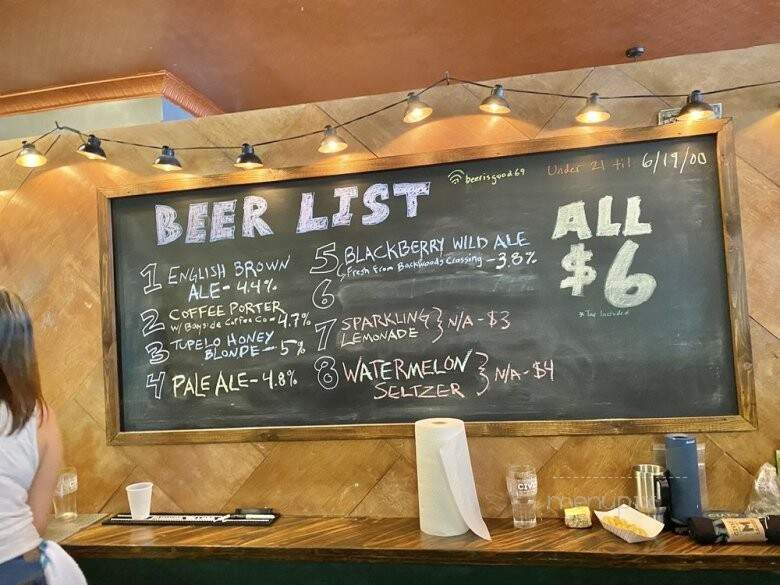 beerisgood69
Under 21 til 6/19/00
BEER LIST
ALL
$6
* Tax Included
1 ENGLISH BROWN
ALE - 4.4%
2 COFFEE PORTER
w/ Bayside Coffee Co - 4.7%
3 TUPELO HONEY
BLONDE - 5%
4 PALE ALE - 4.8%
5 BLACKBERRY WILD ALE
Fresh From Backwoods Crossing - 3.8%
6
7 SPARKLING
LEMONADE } N/A - $3
8 WATERMELON
SELTZER } N/A - $4
CIVIC
menupix